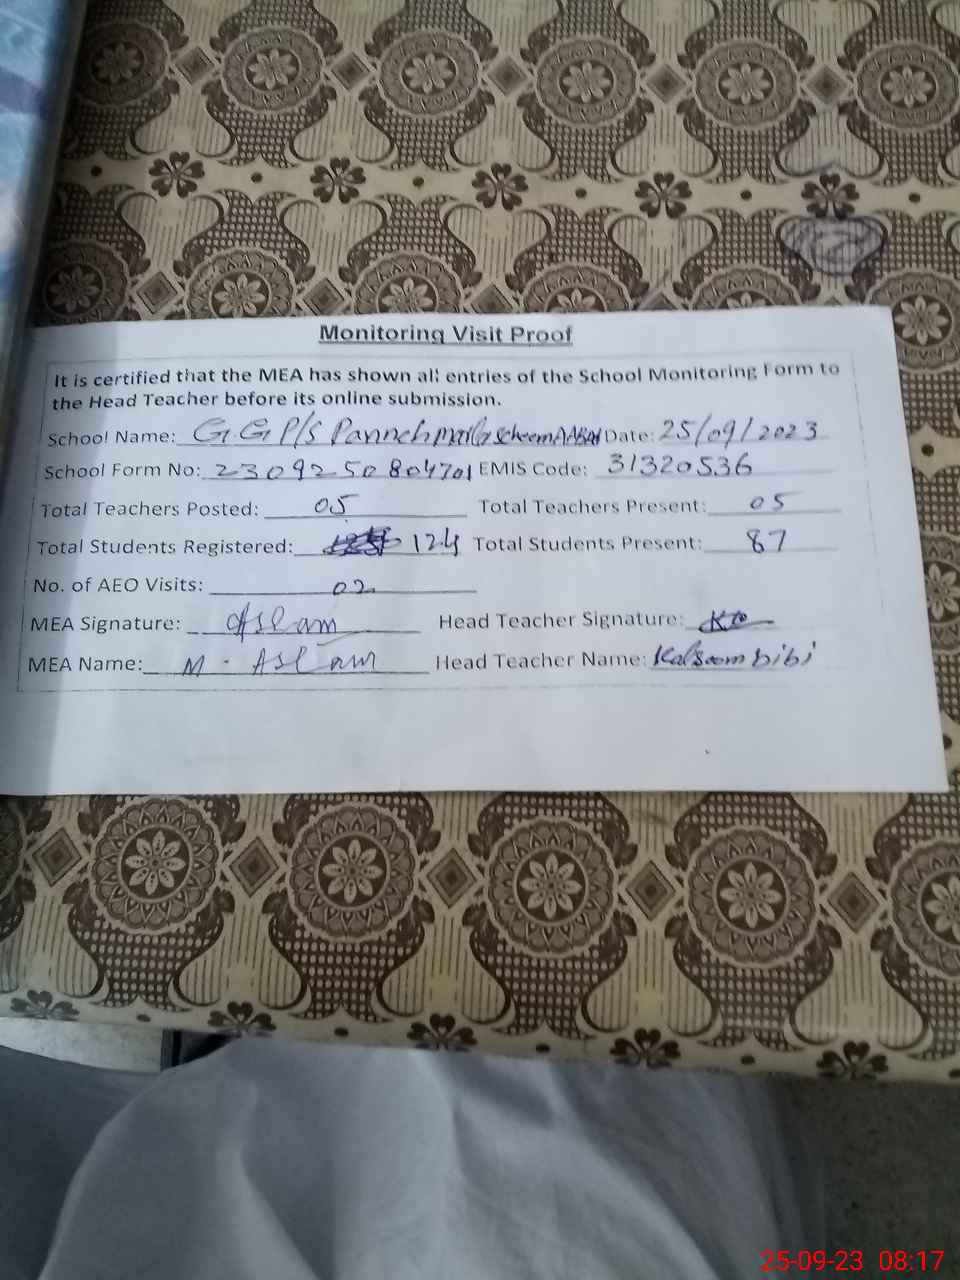 Monitoring Visit Proof
It is certified that the MEA has shown all entries of the School Monitoring Form to
the Head Teacher before its online submission.
School Name: G.G P/S Date: 25/09/2023
School Form No: 2309250804701 EMIS Code: 31320536
Total Teachers Posted: 05 Total Teachers Present: 05
Total Students Registered: 124 Total Students Present: 87
No. of AEO Visits: 02
MEA Signature: Aslam Head Teacher Signature:
MEA Name: M. Aslam Head Teacher Name: Kalsoom bibi
25-09-23 08:17